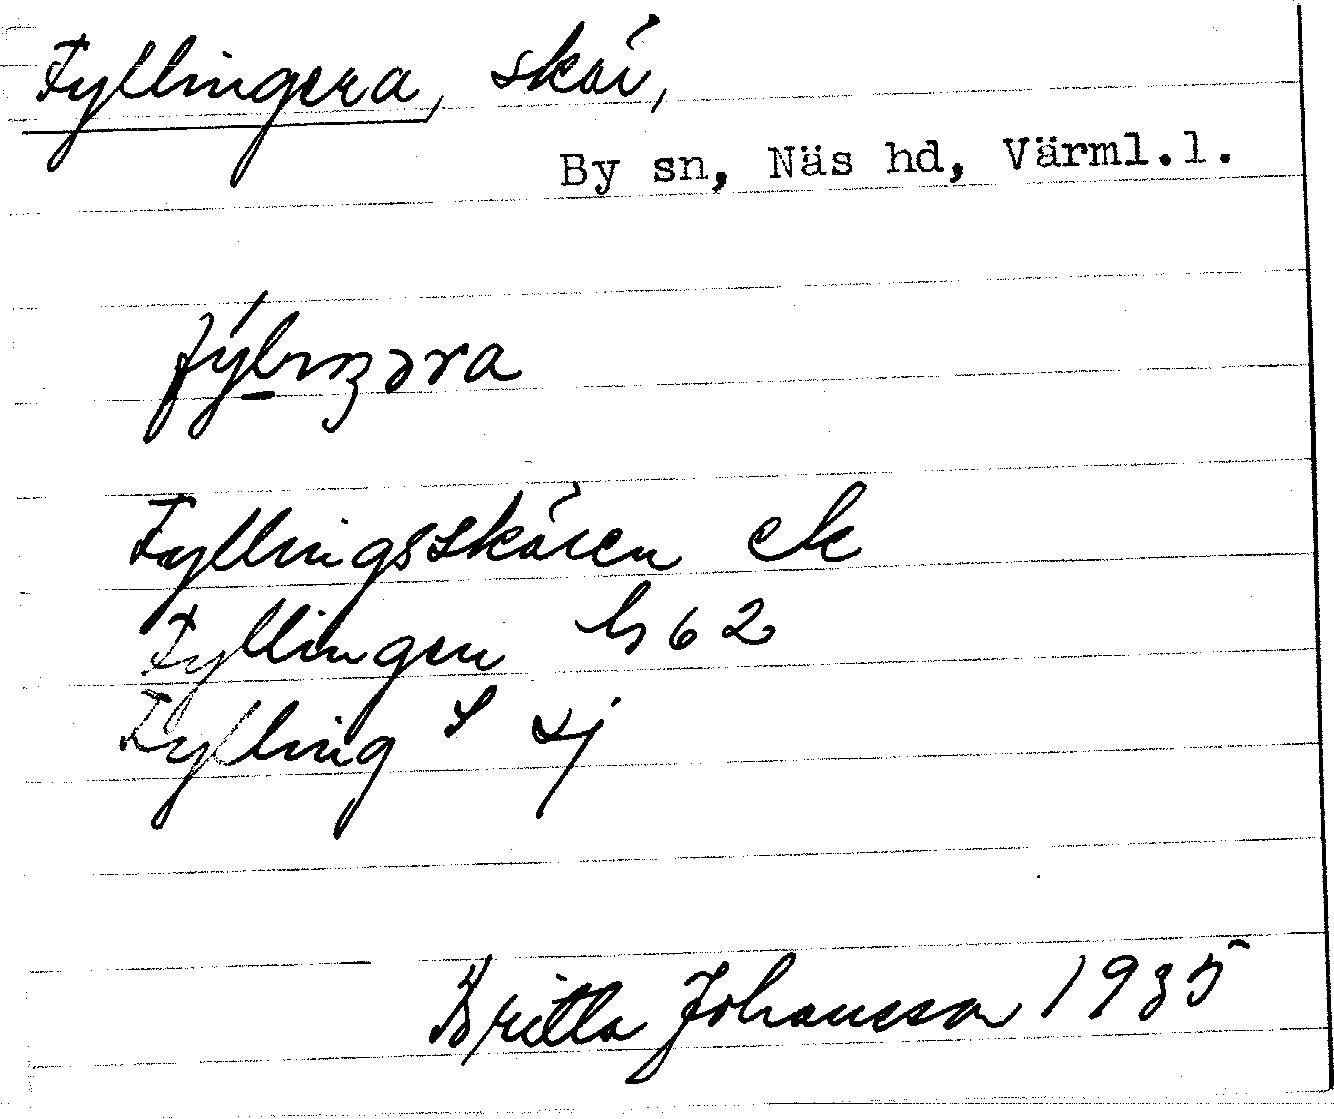 Fyllingera, skär,
By sn, Näs hd, Värml.l.
Fyllingsskären ek
Fyllingen h 62
Fylling sj
Britta Johansson 1935